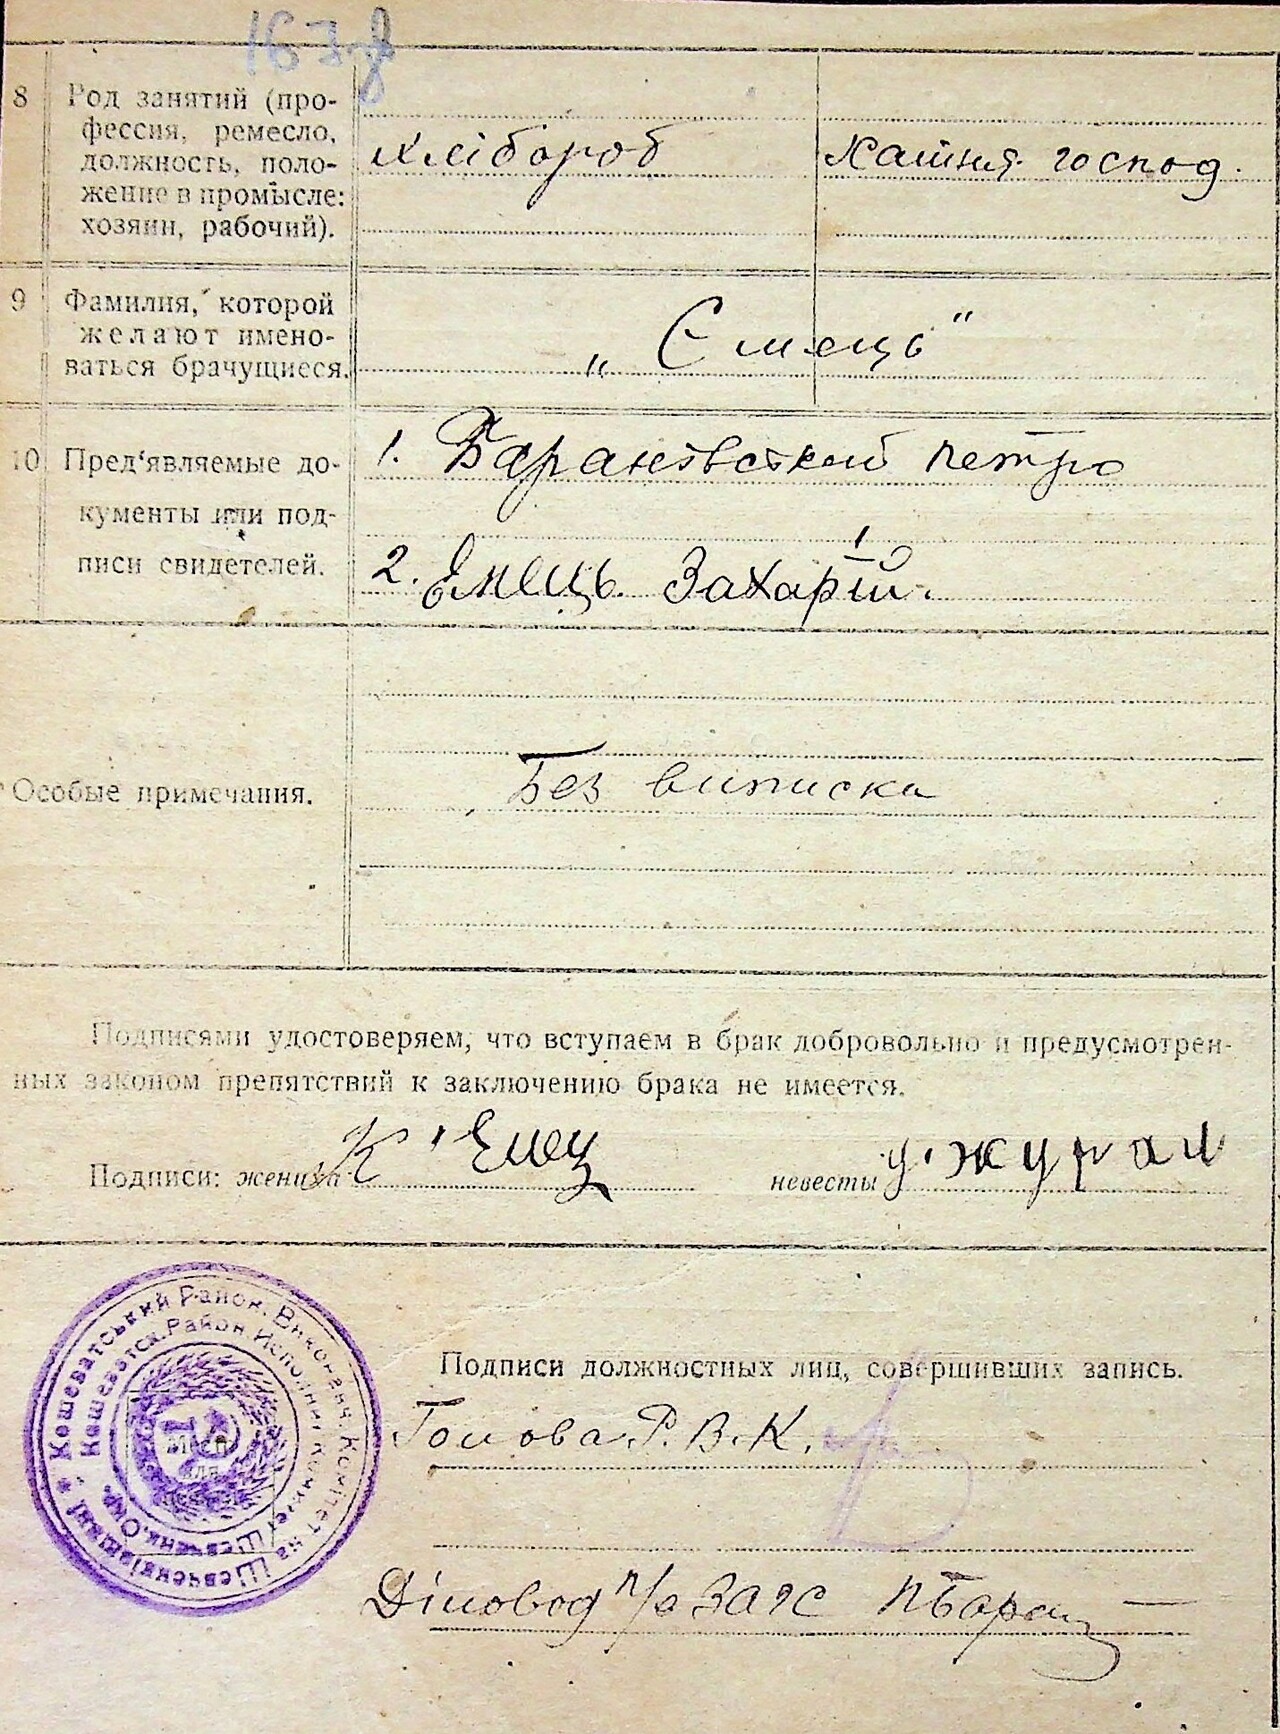 167
8 Род занятий (про-
фессия, ремесло,
должность, поло-
жение в промысле:
хозяин, рабочий).
хлібороб
хатня господ.
9 Фамилия, которой
желают имено-
ваться брачущиеся.
„Ємець“
10 Пред‘являемые до-
кументы или под-
писи свидетелей.
1. Барановский Петро
2. Емець. Захарій.
Особые примечания.
Без виписки
Подписями удостоверяем, что вступаем в брак добровольно и предусмотрен-
ных законом препятствий к заключению брака не имеется.
Подписи: жениха К Емец невесты у. журал
Кошеватський Район. Виконавч. Комітет на Шевченківщині
Кошеватск. Район. Исполнит. Комитет Шевченк. Окр.
Подписи должностных лиц, совершивших запись.
Голова Р.В.К.
Діловод п/о ЗАГС ПБаран